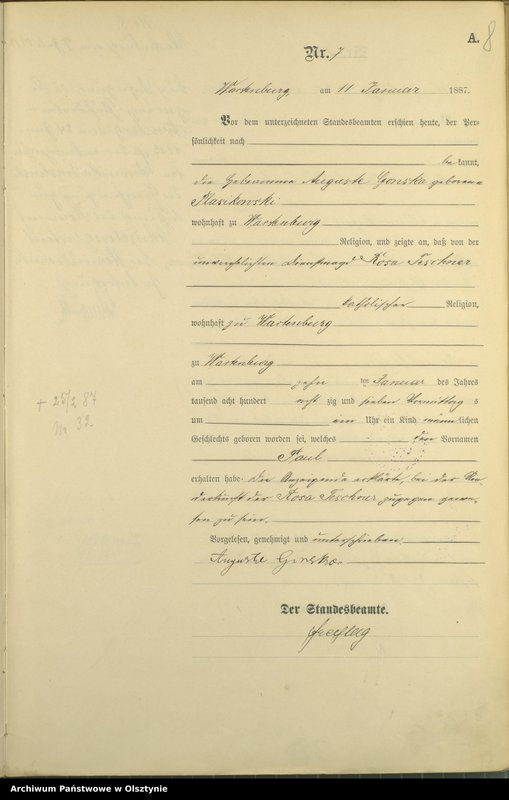 A.
8
Nr. 7
Wartenburg, am 11 Januar 1887.
Vor dem unterzeichneten Standesbeamten erschien heute, der Per-
sönlichkeit nach
be kannt,
die Hebeamme Auguste Gonska geborene
wohnhaft zu Wartenburg
Religion, und zeigte an, daß von der
unverehelichten Dienstmagd Rosa Teschner
katholischer Religion,
wohnhaft zu Wartenburg
zu Wartenburg
am zehn ten Januar des Jahres
tausend acht hundert acht zig und sieben Vormittag s
um ein Uhr ein Kind männ lichen
Geschlechts geboren worden sei, welches den Vornamen
Paul
erhalten habe. Die Anzeigende erklärte, bei der Nie-
derkunft der Rosa Teschner zugegen gewe-
sen zu sein.
Vorgelesen, genehmigt und unterschrieben
Auguste Gonska
Der Standesbeamte.
+ 25/2 87
Nr 32
Archiwum Państwowe w Olsztynie